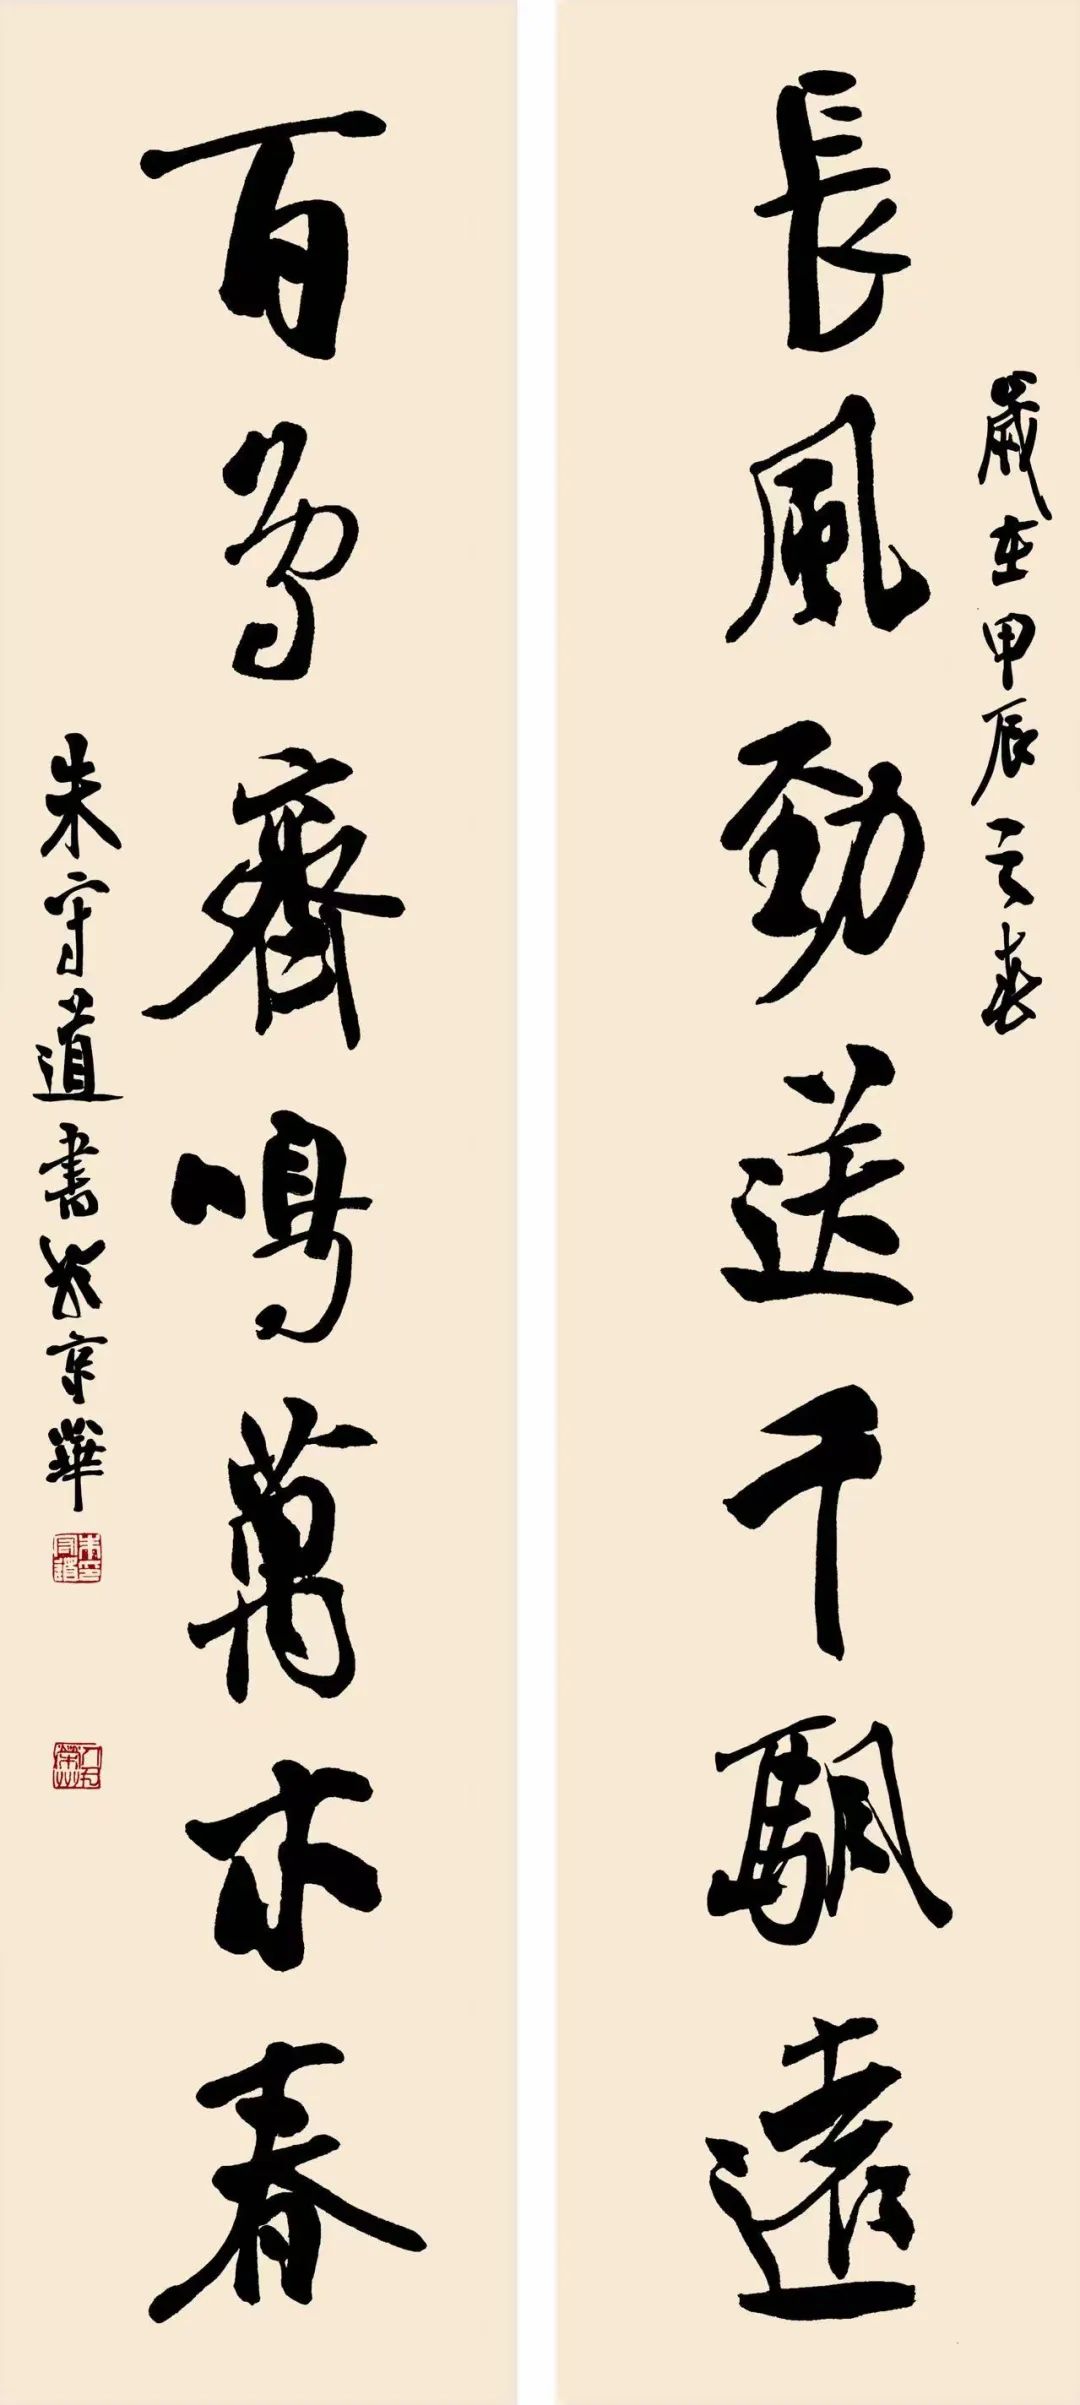 歲在甲辰之春
長風勁送千颿遠
百鳥齊鳴萬木春
朱守道書於京華